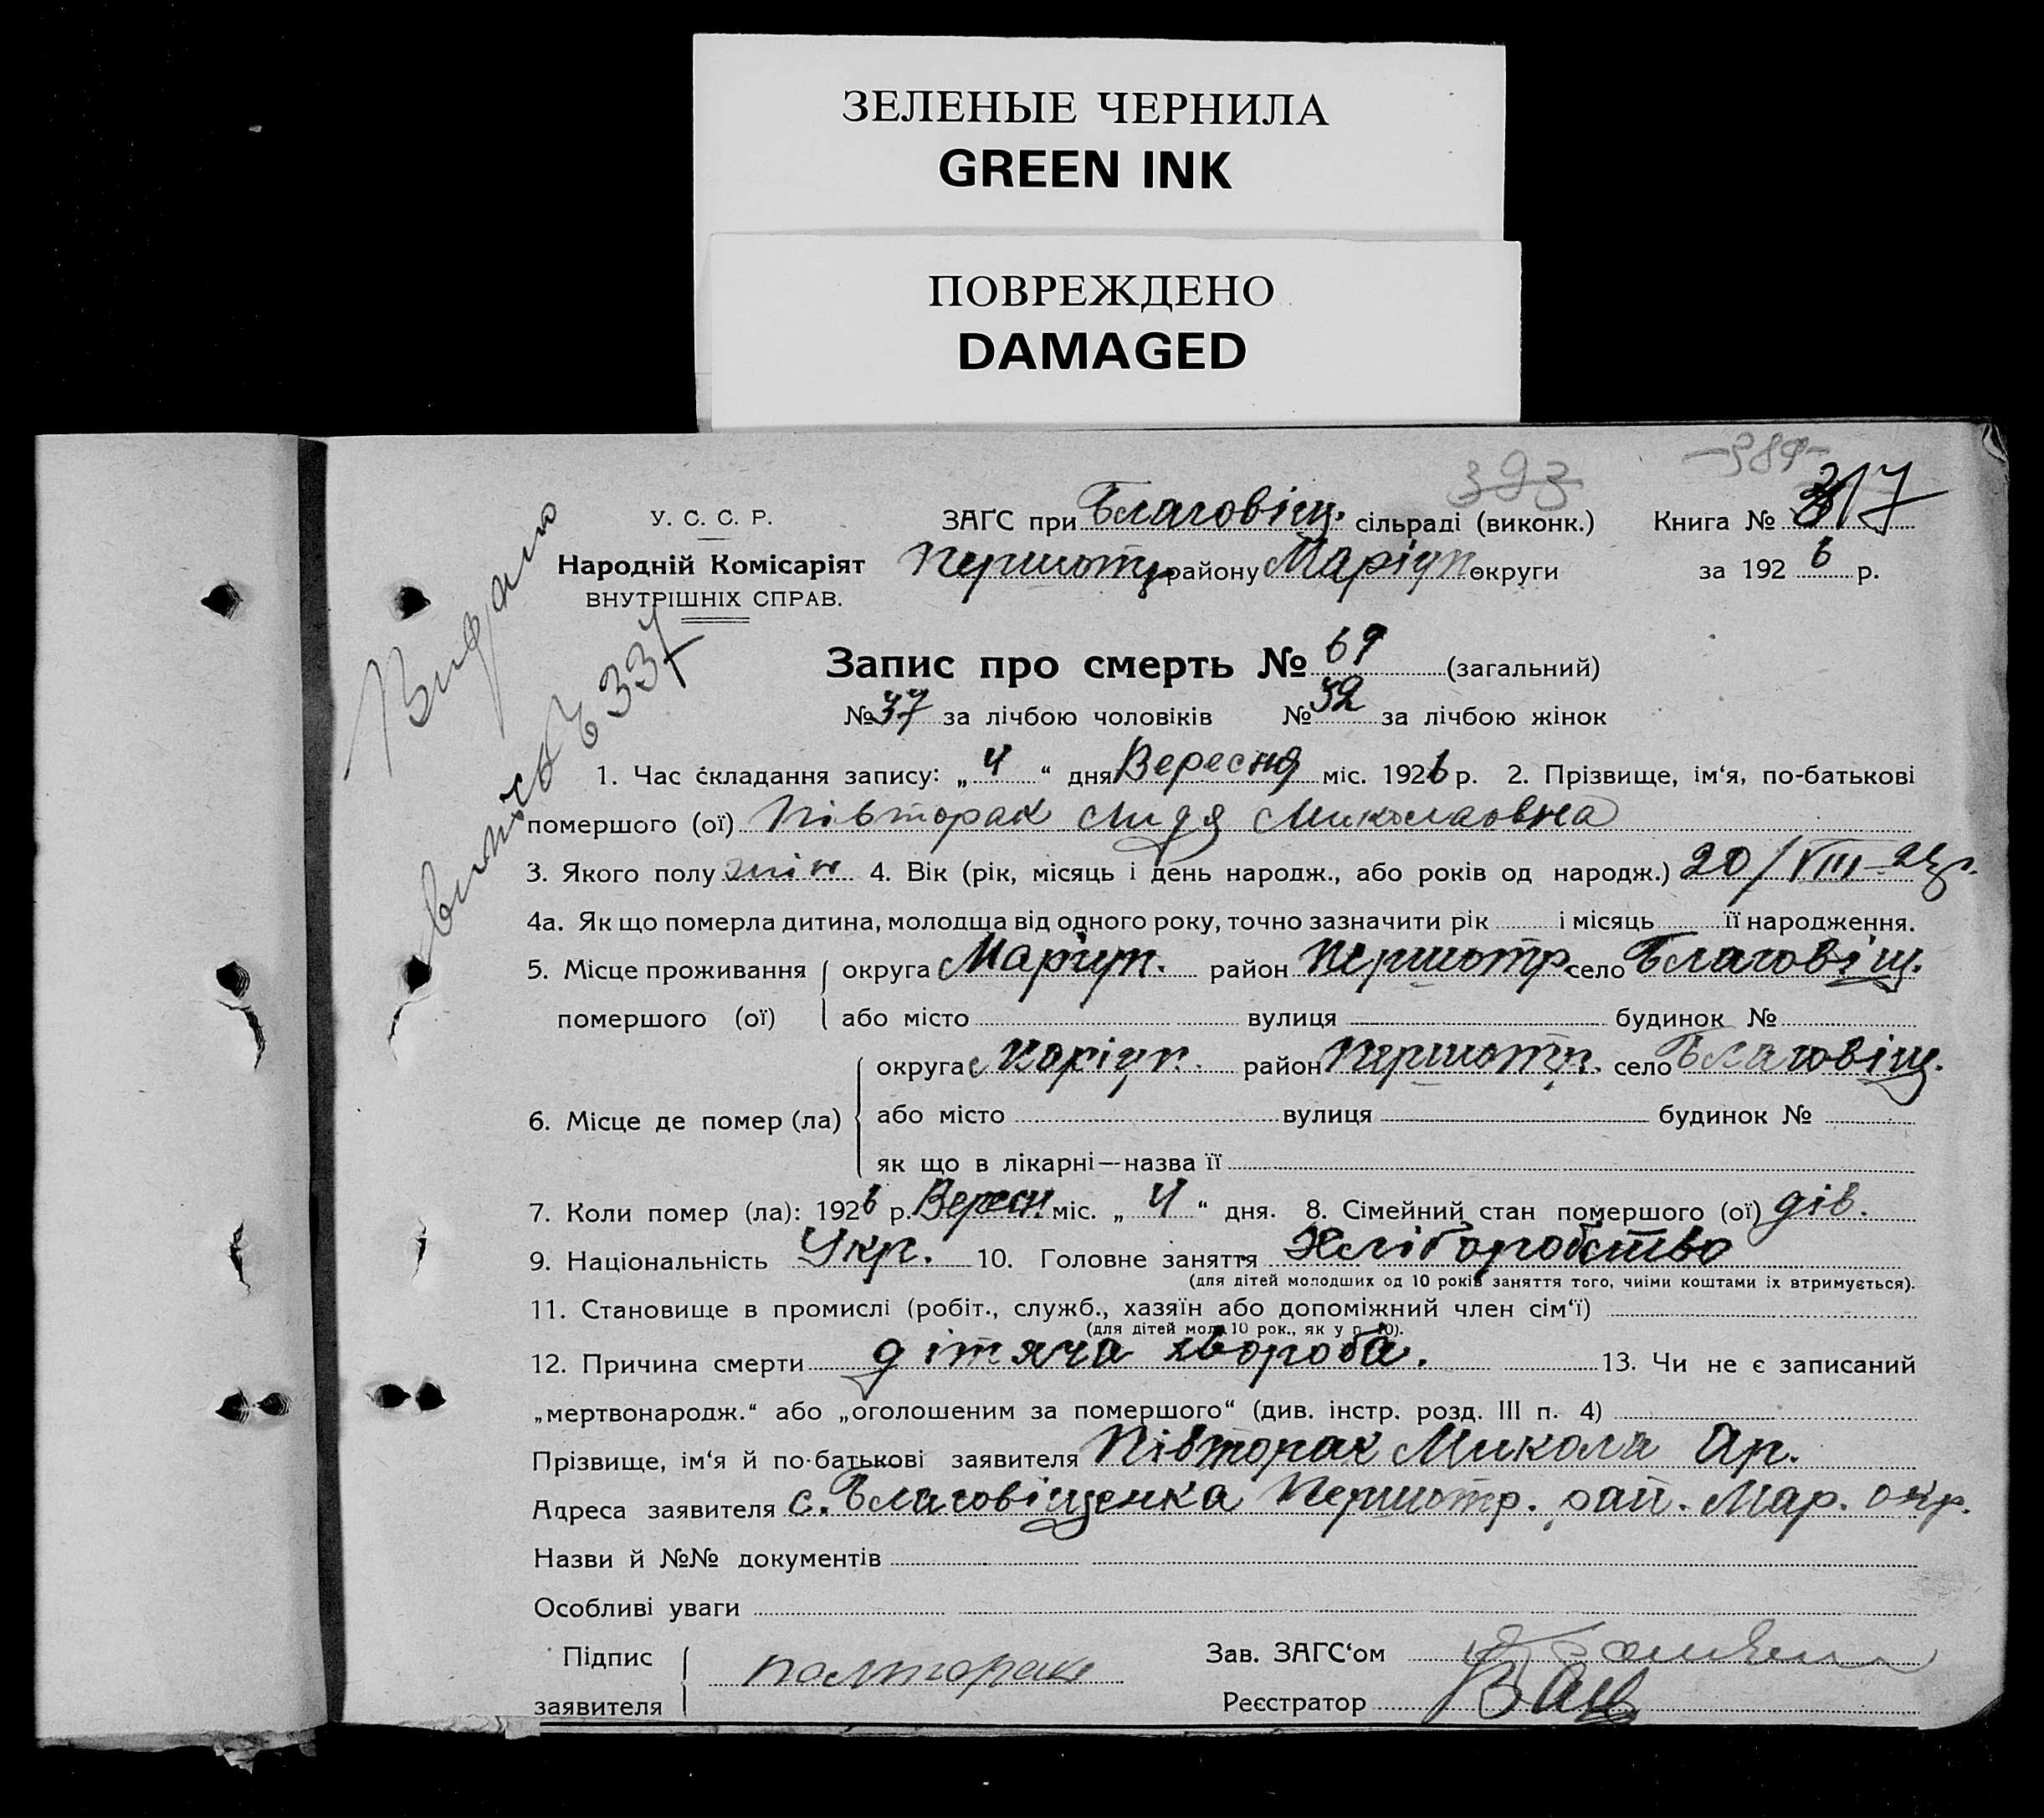 ЗЕЛЕНЫЕ ЧЕРНИЛА
GREEN INK
ПОВРЕЖДЕНО
DAMAGED
393
Видано
337
У. С. С. Р.
Народній Комісаріят
ВНУТРІШНІХ СПРАВ.
ЗАГС при Благовіщ. сільраді (виконк.) Книга № 317
Першотр району Маріуп округи за 1926 р.
Запис про смерть № 69 (загальний)
№ 37 за лічбою чоловіків № 32 за лічбою жінок
1. Час складання запису: „4“ дня Вересня міс. 1926 р. 2. Прізвище, ім‘я, по-батькові
помершого (ої) Півторак Лидя Миколаовна
3. Якого полу жін 4. Вік (рік, місяць і день народж., або років од народж.) 20/VIII-
4а. Як що померла дитина, молодща від одного року, точно зазначити рік і місяць її народження.
5. Місце проживання округа Маріуп. район Першотр село Благовіщ.
помершого (ої) або місто вулиця будинок №
округа Маріуп. район Першотр. село Благовіщ.
6. Місце де помер (ла) або місто вулиця будинок №
як що в лікарні—назва її
7. Коли помер (ла): 1926 р. Вересн. міс. „4“ дня. 8. Сімейний стан помершого (ої) дів.
9. Національність Укр. 10. Головне заняття Хліборобство
(для дітей молодших од 10 років заняття того, чиїми коштами їх втримується).
11. Становище в промислі (робіт., служб., хазяїн або допоміжний член сім‘ї)
(для дітей мол. 10 рок., як у п. 10).
12. Причина смерти дітяча хвороба. 13. Чи не є записаний
„мертвонародж.“ або „оголошеним за помершого“ (див. інстр. розд. III п. 4)
Прізвище, ім‘я й по-батькові заявителя Півторак Микола Ар.
Адреса заявителя с. Благовіщенка Першотр. рай. Мар. окр.
Назви й №№ документів
Особливі уваги
Підпис
заявителя Полторак
Зав. ЗАГС‘ом
Реєстратор